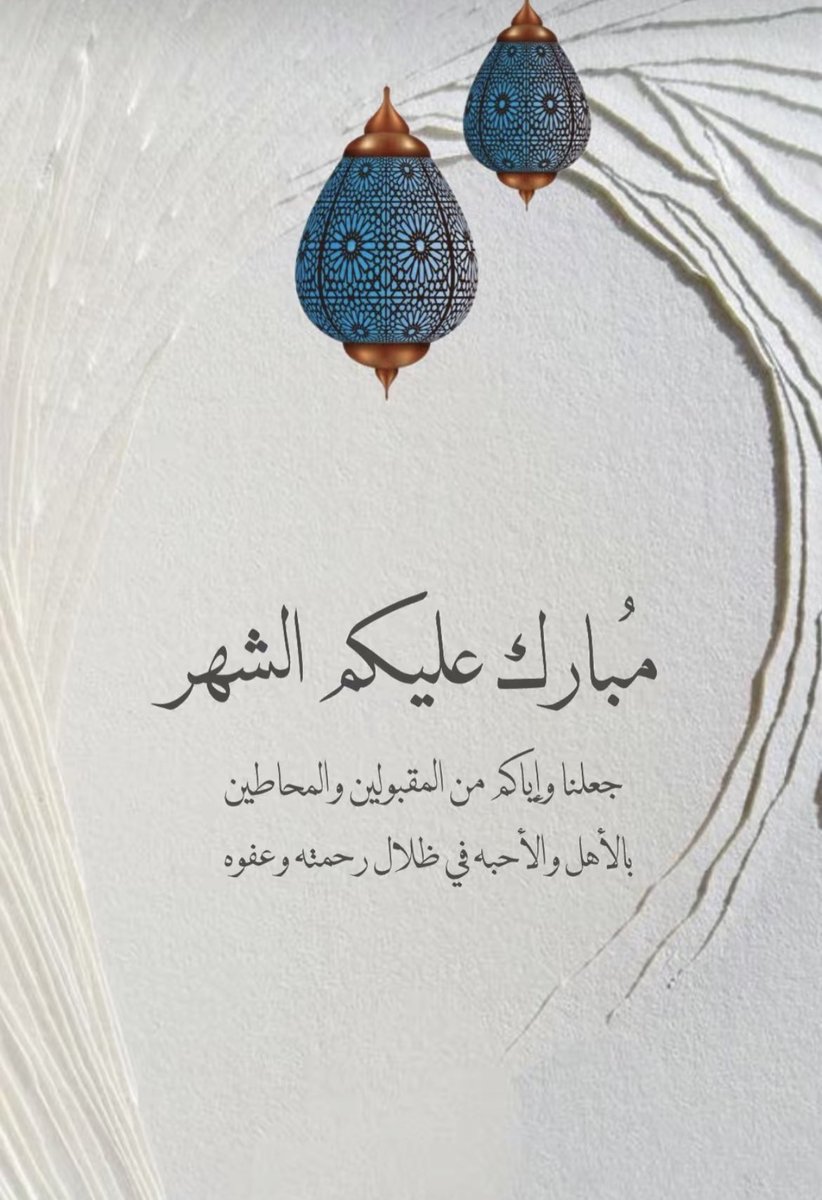 مُبارك عليكم الشهر
جعلنا وإياكم من المقبولين والمحاطين
بالأهل والأحبه في ظلال رحمته وعفوه